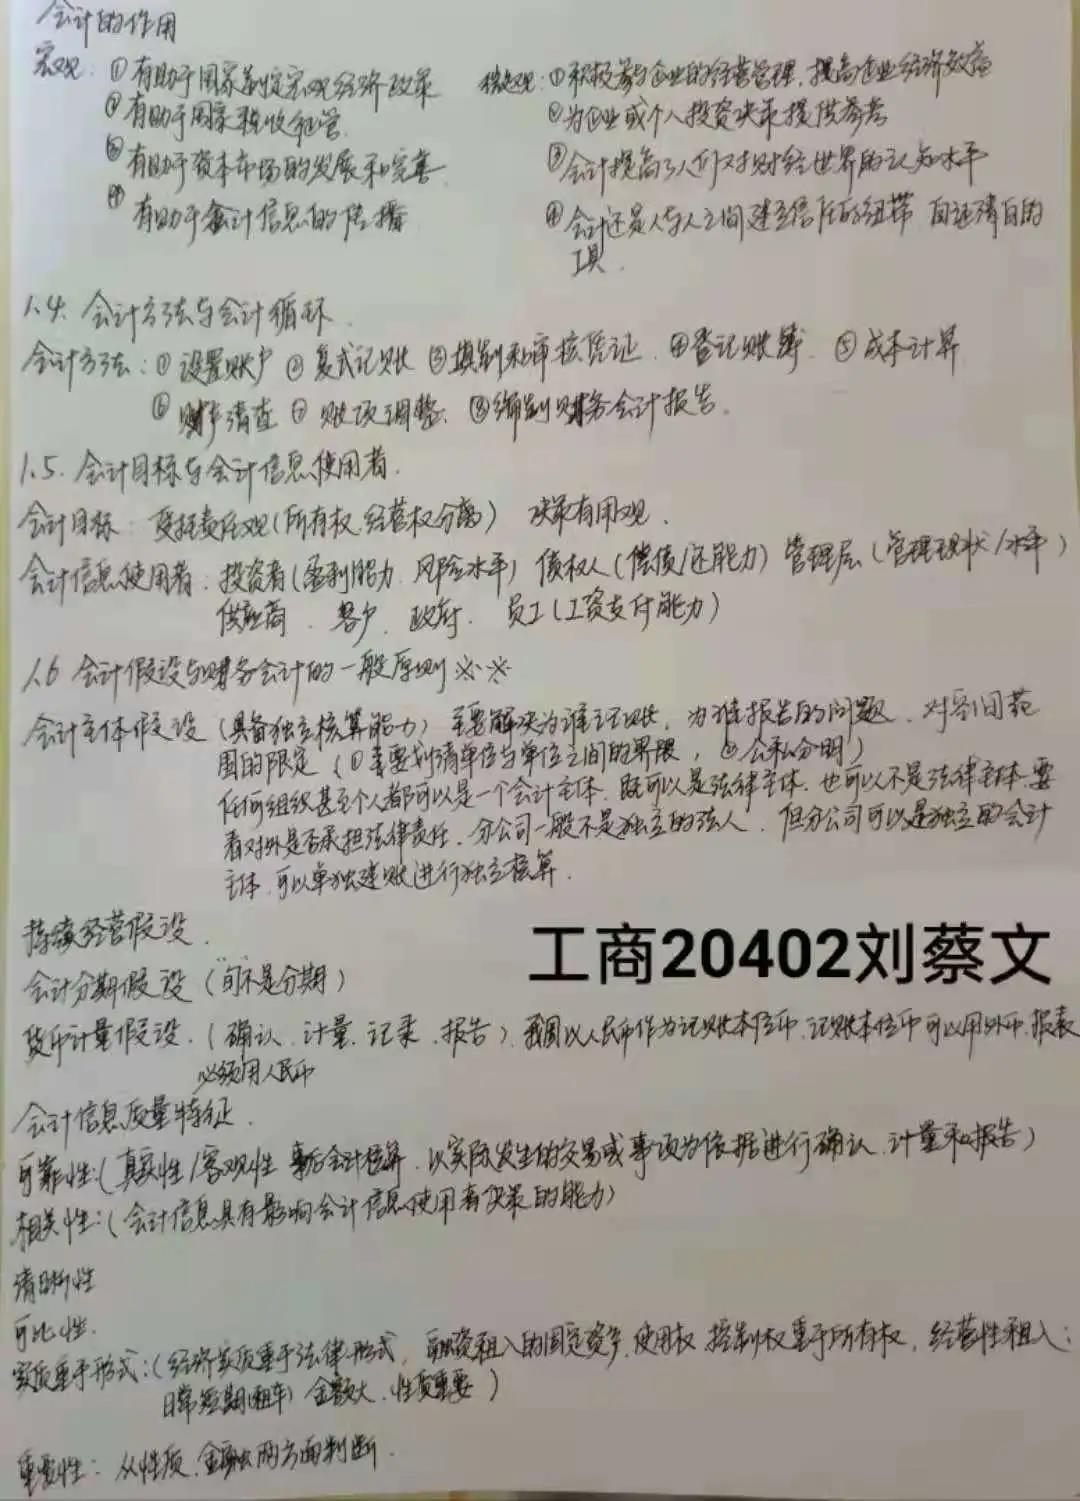 会计的作用
宏观：①有助于国家制定宏观经济政策 微观：①积极参与企业的经营管理，提高企业经济效益
②有助于国家税收征管 ②为企业或个人投资决策提供参考
③有助于资本市场的发展和完善 ③会计提高了人们对财经世界的认知水平
④有助于会计信息的传播 ④会计还是人与人之间建立信任的纽带 自证清白的
工具.
1.4. 会计方法与会计循环.
会计方法：①设置账户 ②复式记账 ③填制和审核凭证 ④登记账簿. ⑤成本计算
⑥财产清查 ⑦账项调整. ⑧编制财务会计报告.
1.5. 会计目标与会计信息使用者.
会计目标：受托责任观（所有权.经营权分离） 决策有用观.
会计信息使用者：投资者（盈利能力.风险水平）债权人（偿债/还能力）管理层（管理现状/水平）
供应商. 客户. 政府. 员工（工资支付能力）
1.6 会计假设与财务会计的一般原则※※
会计主体假设（具备独立核算能力）主要解决为谁记账，为谁报告的问题.对空间范
围的限定（①主要划清单位与单位之间的界限，②公私分明）
任何组织甚至个人都可以是一个会计主体.既可以是法律主体.也可以不是法律主体.要
看对外是否承担法律责任.分公司一般不是独立的法人.但分公司可以是独立的会计
主体.可以单独建账进行独立核算.
持续经营假设.
工商20402刘蔡文
会计分期假设（间不是分期）
货币计量假设.（确认.计量.记录.报告）.我国以人民币作为记账本位币.记账本位币可以用外币.报表
必须用人民币
会计信息质量特征.
可靠性：（真实性/客观性 事后会计核算.以实际发生的交易或事项为依据进行确认.计量和报告）
相关性：（会计信息具有影响会计信息使用者决策的能力）
清晰性
可比性.
实质重于形式：（经济实质重于法律形式，融资租入的固定资产.使用权 控制权重于所有权，经营性租入：
日常短期（租车）金额大.性质重要）
重要性：从性质.金额两方面判断.